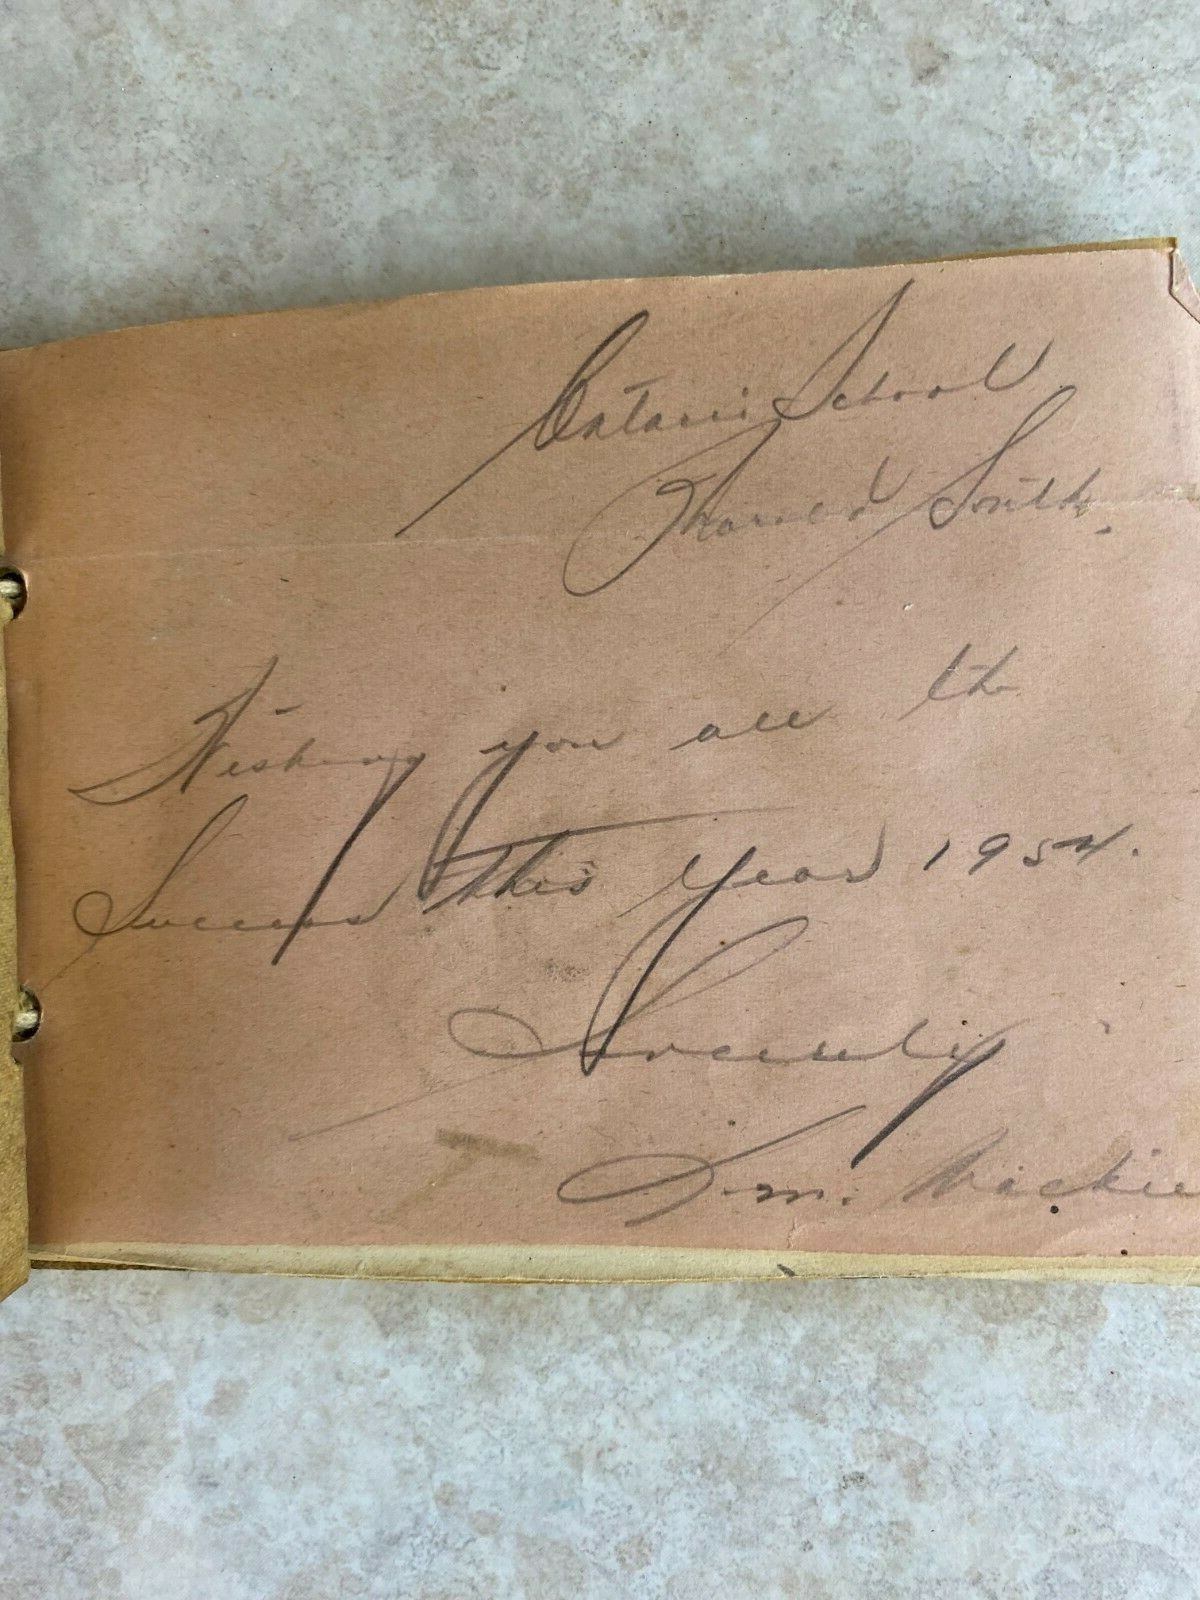 Ontario School
Thorold South.
Wishing you all the
Success this Year 1954.
Sincerely
Mackie